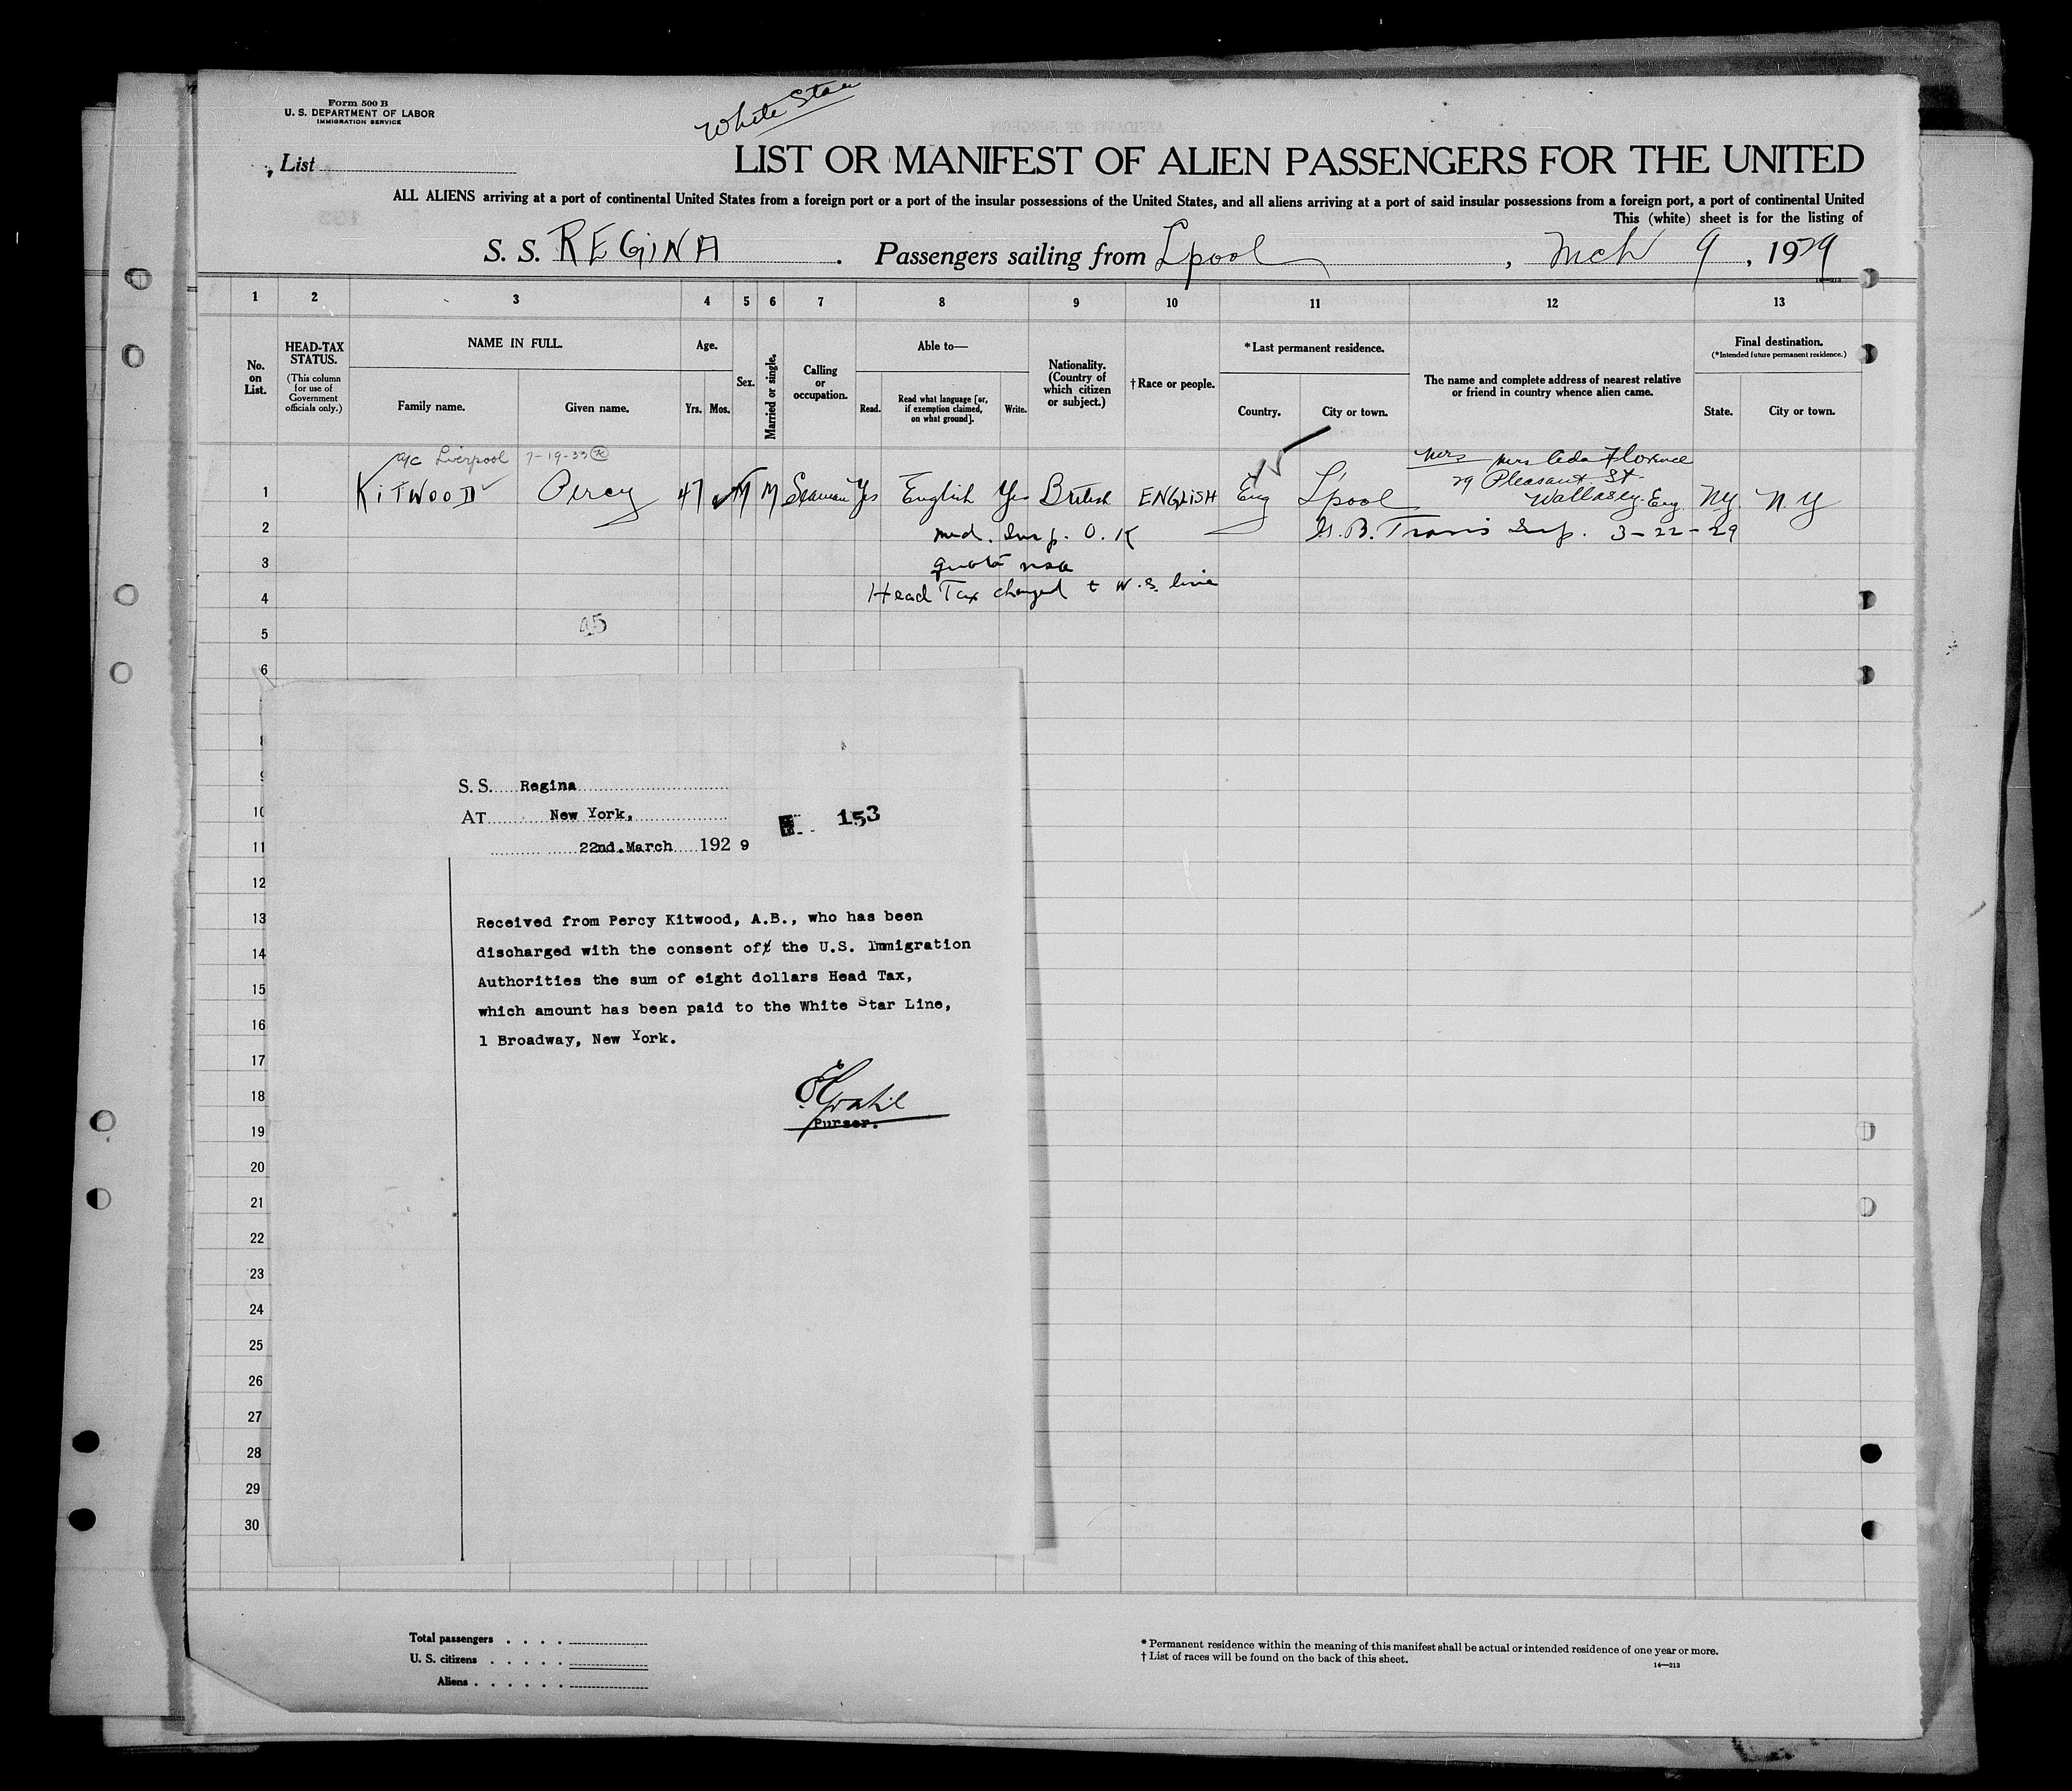 Form 500 B
U. S. DEPARTMENT OF LABOR
IMMIGRATION SERVICE
White Star
List
LIST OR MANIFEST OF ALIEN PASSENGERS FOR THE UNITED
ALL ALIENS arriving at a port of continental United States from a foreign port or a port of the insular possessions of the United States, and all aliens arriving at a port of said insular possessions from a foreign port, a port of continental United
This (white) sheet is for the listing of
S. S. REGINA . Passengers sailing from Lpool , Mch 9 , 1929
1 2 3 4 5 6 7 8 9 10 11 12 13
No. on List.
HEAD-TAX STATUS.
(This column for use of Government officials only.)
NAME IN FULL.
Family name.
Given name.
Age.
Yrs.
Mos.
Sex.
Married or single.
Calling or occupation.
Able to—
Read.
Read what language [or, if exemption claimed, on what ground].
Write.
Nationality. (Country of which citizen or subject.)
† Race or people.
* Last permanent residence.
Country.
City or town.
The name and complete address of nearest relative or friend in country whence alien came.
Final destination.
(* Intended future permanent residence.)
State.
City or town.
Liverpool 7-19-33
Mrs Mrs Ada Florence
29 Pleasant St.
Wallasey. Eng
1 KITWOOD Percy 47 M M Seaman Yes English Yes British ENGLISH Eng L'pool N.Y. N.Y
2 Med. Insp. O.K B. Travis Insp. 3-22-29
3 quota visa
4 Head Tax charged t W.S. line
5
6
8
9
10
11
12
13
14
15
16
17
18
19
20
21
22
23
24
25
26
27
28
29
30
S. S. Regina
AT New York,
22nd.March 192 9
153
Received from Percy Kitwood, A.B., who has been
discharged with the consent of the U.S. Immigration
Authorities the sum of eight dollars Head Tax,
which amount has been paid to the White Star Line,
1 Broadway, New York.
Purser.
Total passengers
U. S. citizens
Aliens
* Permanent residence within the meaning of this manifest shall be actual or intended residence of one year or more.
† List of races will be found on the back of this sheet.
14—213